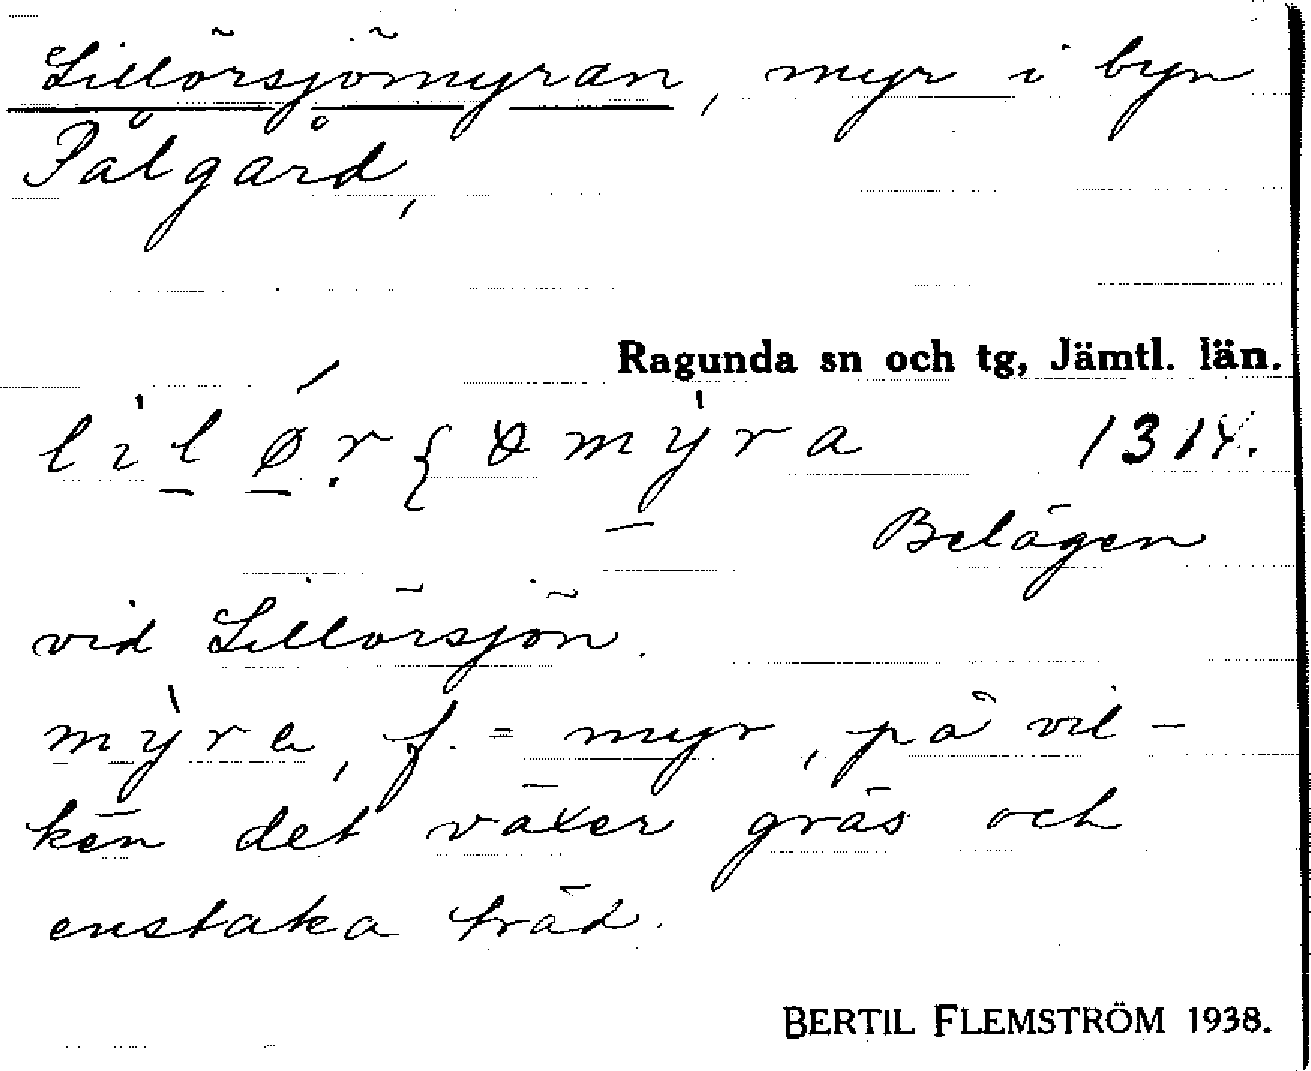 Lillörsjömyran, myr i byn
Pålgård,
Ragunda sn och tg, Jämtl. län.
lil ør{ömyra 1314.
Belägen
vid Lillörsjön.
myra, f. = myr, på vil-
ken det växer gräs och
enstaka träd.
BERTIL FLEMSTRÖM 1938.